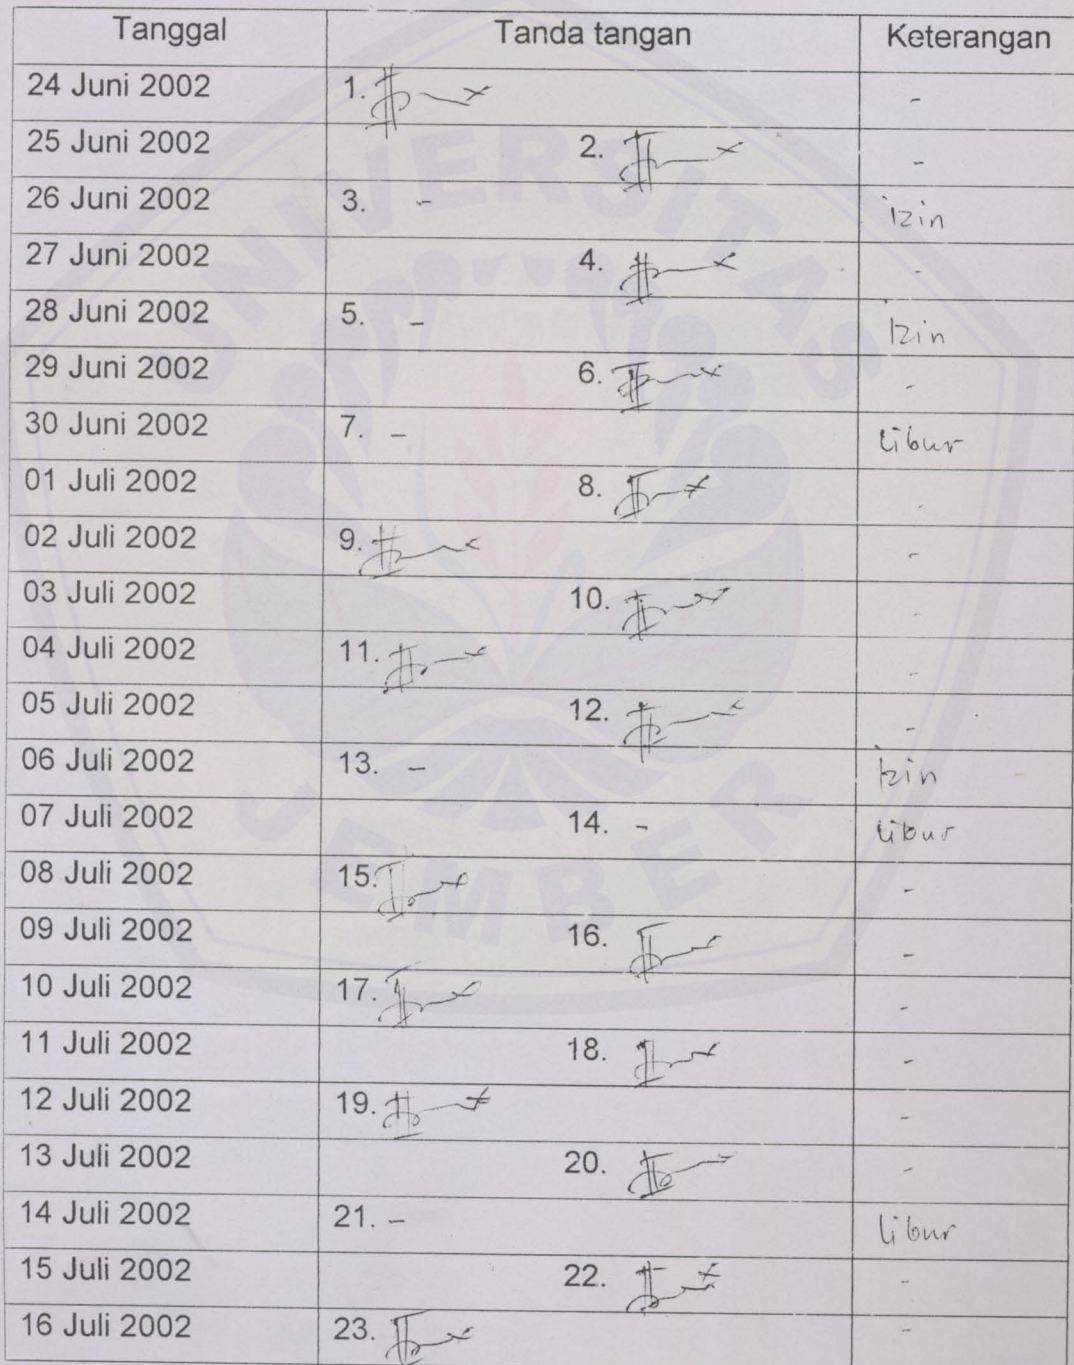 Tanggal Tanda tangan Keterangan
24 Juni 2002 1. -
25 Juni 2002 2. -
26 Juni 2002 3. - izin
27 Juni 2002 4. -
28 Juni 2002 5. - Izin
29 Juni 2002 6. -
30 Juni 2002 7. - Libur
01 Juli 2002 8. -
02 Juli 2002 9. -
03 Juli 2002 10. -
04 Juli 2002 11. -
05 Juli 2002 12. -
06 Juli 2002 13. - Izin
07 Juli 2002 14. - Libur
08 Juli 2002 15. -
09 Juli 2002 16. -
10 Juli 2002 17. -
11 Juli 2002 18. -
12 Juli 2002 19. -
13 Juli 2002 20. -
14 Juli 2002 21. - Libur
15 Juli 2002 22. -
16 Juli 2002 23. -
UNIVERSITAS
JEMBER